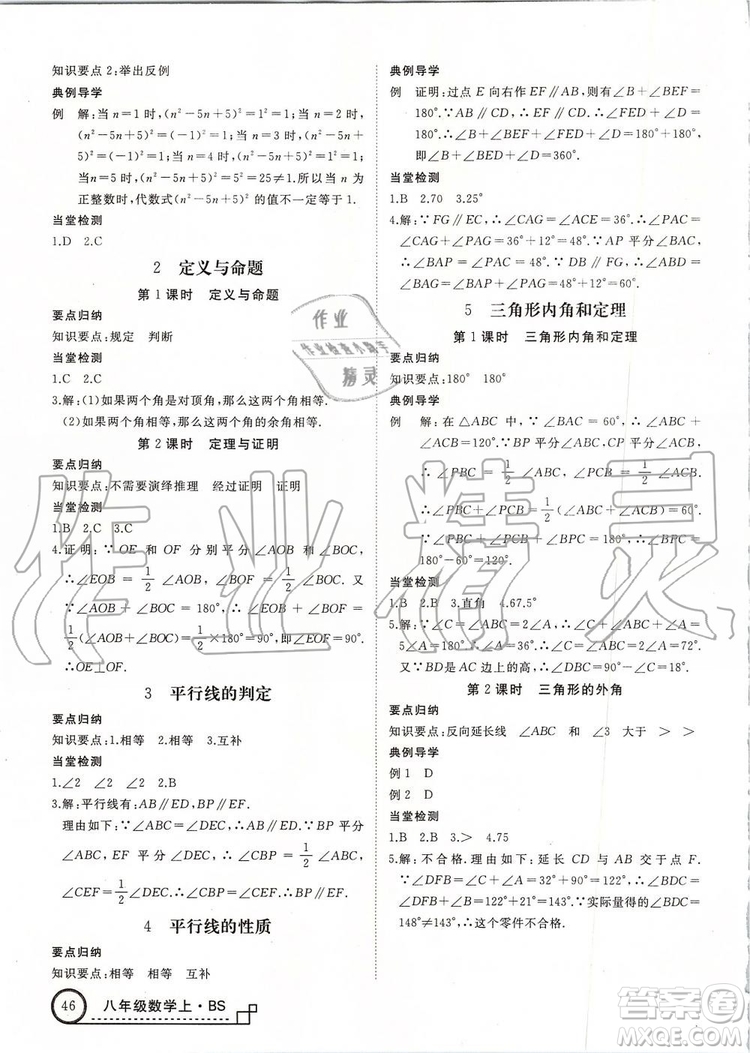 知识要点2:举出反例
典例导学
例 解:当 n=1 时,(n²-5n+5)²=1²=1;当 n=2 时,
(n²-5n+5)²=(-1)²=1;当 n=3 时,(n²-5n+
5)²=(-1)²=1;当 n=4 时,(n²-5n+5)²=1²=1;
当 n=5 时,(n²-5n+5)²=5²=25≠1.所以当 n 为
正整数时,代数式(n²-5n+5)² 的值不一定等于1.
当堂检测
1.D 2.C
2 定义与命题
第1课时 定义与命题
要点归纳
知识要点:规定 判断
当堂检测
1.C 2.C
3.解:(1)如果两个角是对顶角,那么这两个角相等.
(2)如果两个角相等,那么这两个角的余角相等.
第2课时 定理与证明
要点归纳
知识要点:不需要演绎推理 经过证明 证明
当堂检测
1.B 2.C 3.C
4.证明:∵OE 和 OF 分别平分∠AOB 和∠BOC,
∴∠EOB=1/2∠AOB,∠BOF=1/2∠BOC.又
∵∠AOB+∠BOC=180°,∴∠EOB+∠BOF=
1/2(∠AOB+∠BOC)=1/2×180°=90°,即∠EOF=90°.
∴OE⊥OF.
3 平行线的判定
要点归纳
知识要点:1.相等 2.相等 3.互补
当堂检测
1.∠2 ∠2 2.B
3.解:平行线有:AB∥ED,BP∥EF.
理由如下:∵∠ABC=∠DEC,∴AB∥ED.∵BP平分
∠ABC,EF平分∠DEC,∴∠CBP=1/2∠ABC,
∠CEF=1/2∠DEC.∴∠CBP=∠CEF.∴BP∥EF.
4 平行线的性质
要点归纳
知识要点:相等 相等 互补
46 八年级数学上·BS
典例导学
例 证明:过点 E 向右作 EF∥AB,则有∠B+∠BEF=
180°.∵AB∥CD,∴EF∥CD.∴∠FED+∠D=
180°.∴∠B+∠BEF+∠FED+∠D=180°+180°,
即∠B+∠BED+∠D=360°.
当堂检测
1.B 2.70 3.25°
4.解:∵FG∥EC,∴∠CAG=∠ACE=36°.∴∠PAC=
∠CAG+∠PAG=36°+12°=48°.∵AP 平分∠BAC,
∴∠BAP=∠PAC=48°.∵DB∥FG,∴∠ABD=
∠BAG=∠BAP+∠PAG=48°+12°=60°.
5 三角形内角和定理
第1课时 三角形内角和定理
要点归纳
知识要点:180° 180°
典例导学
例 解:在△ABC 中,∵∠A=60°,∴∠ABC+
∠ACB=120°.∵BP平分∠ABC,CP平分∠ACB,
∴∠PBC=1/2∠ABC,∠PCB=1/2∠ACB.
∴∠PBC+∠PCB=1/2(∠ABC+∠ACB)=60°.
∵∠PBC+∠PCB+∠BPC=180°,∴∠BPC=
180°-60°=120°.
当堂检测
1.B 2.B 3.直角 4.67.5°
5.解:∵∠C=∠ABC=2∠A,∴∠C+∠ABC+∠A=
5∠A=180°.∴∠A=36°.∴∠C=∠ABC=2∠A=72°.
又∵BD是AC 边上的高,∴∠DBC=90°-∠C=18°.
第2课时 三角形的外角
要点归纳
知识要点:反向延长线 ∠ABC 和∠3 大于 > >
典例导学
例1 D
例2 D
当堂检测
1.B 2.B 3.> 4.75
5.解:不合格.理由如下:延长 CD 与 AB 交于点 F.
∵∠DFB=∠C+∠A=32°+90°=122°,∴∠BDC=
∠DFB+∠B=122°+21°=143°.∵实际量得的∠BDC=
148°≠143°,∴这个零件不合格.
作业精灵
作业
作业检查小助手
精灵
答案圈
MXQE.COM